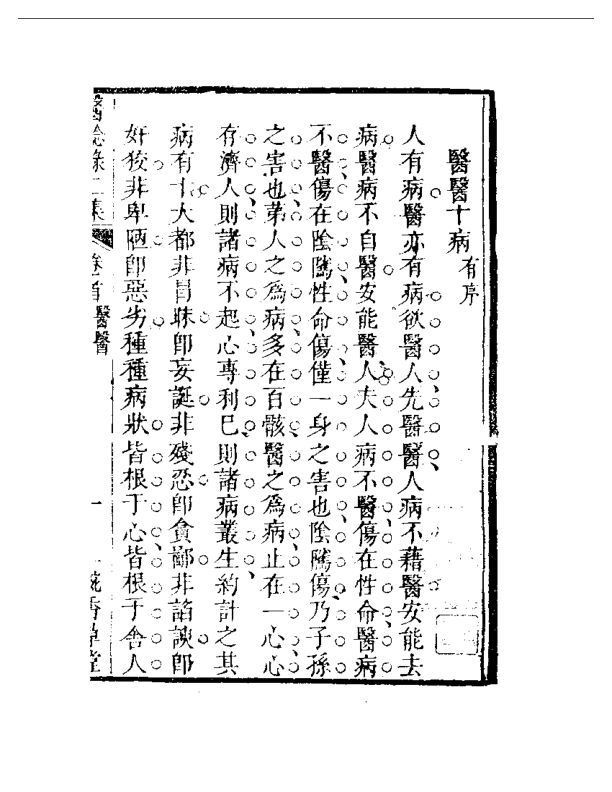 醫醫十病有序
人有病醫亦有病欲醫人先醫醫人病不藉醫安能去
病醫病不自醫安能醫人夫人病不醫傷在性命醫病
不醫傷在陰隲性命傷僅一身之害也陰隲傷乃子孫
之害也苐人之爲病多在百骸醫之爲病止在一心心
存濟人則諸病不起心專利已則諸病叢生約計之其
病有十大都非冐昧卽妄誕非殘忍卽貪鄙非諂諛卽
奸狡非卑陋卽惡劣種種病狀皆根于心皆根于舍人
醫驗錄二集 卷首醫醫 一 蘐香草堂